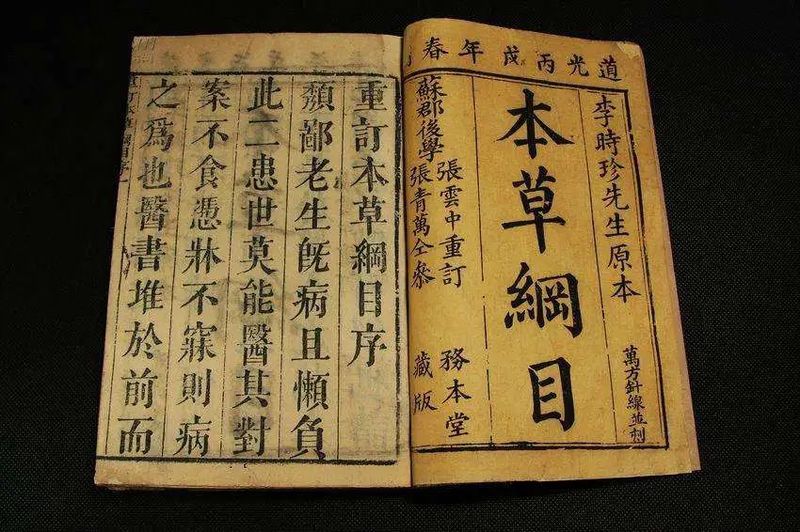 道光丙戌年春
李時珍先生原本
萬方針線並刻
本草綱目
張雲中重訂
蘇郡後學
張青萬仝參
務本堂
藏版
重訂本草綱目序
頹鄙老生既病且懶負
此二患世莫能醫其對
案不食憑牀不寐則病
之爲也醫書堆於前而